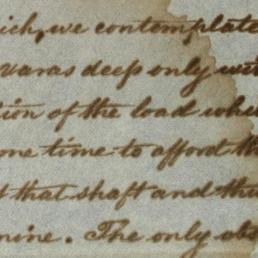 ich, we contemplate
varas deep only wit
ion of the load whe
one time to afford th
t that shaft and thu
mine. The only obs